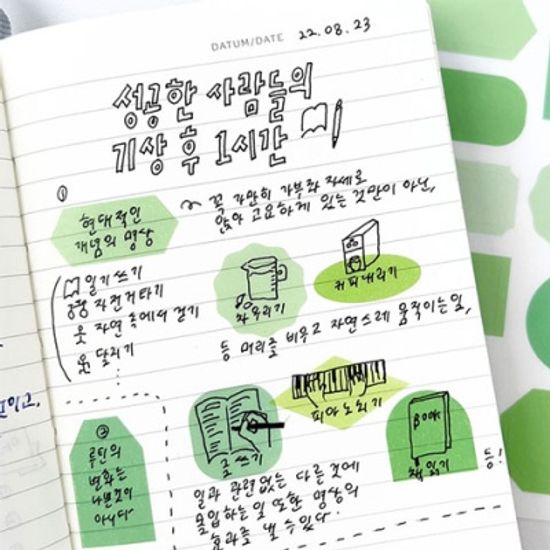 DATUM/DATE 22.08.23
성공한 사람들의
기상 후 1시간
①
현대적인
개념의 명상
꼭 가만히 가부좌 자세로
앉아 고요하게 있는 것만이 아닌,
일기쓰기
자전거타기
자연 속에서 걷기
달리기
차우리기
커피내리기
등 머리를 비우고 자연스레 움직이는 일,
②
루틴의
변화는
나쁜것이
아니다
글쓰기
피아노치기
BOOK
책읽기
등!
일과 관련없는 다른것에
몰입하는 일 또한 명상의
효과를 낼 수 있다.